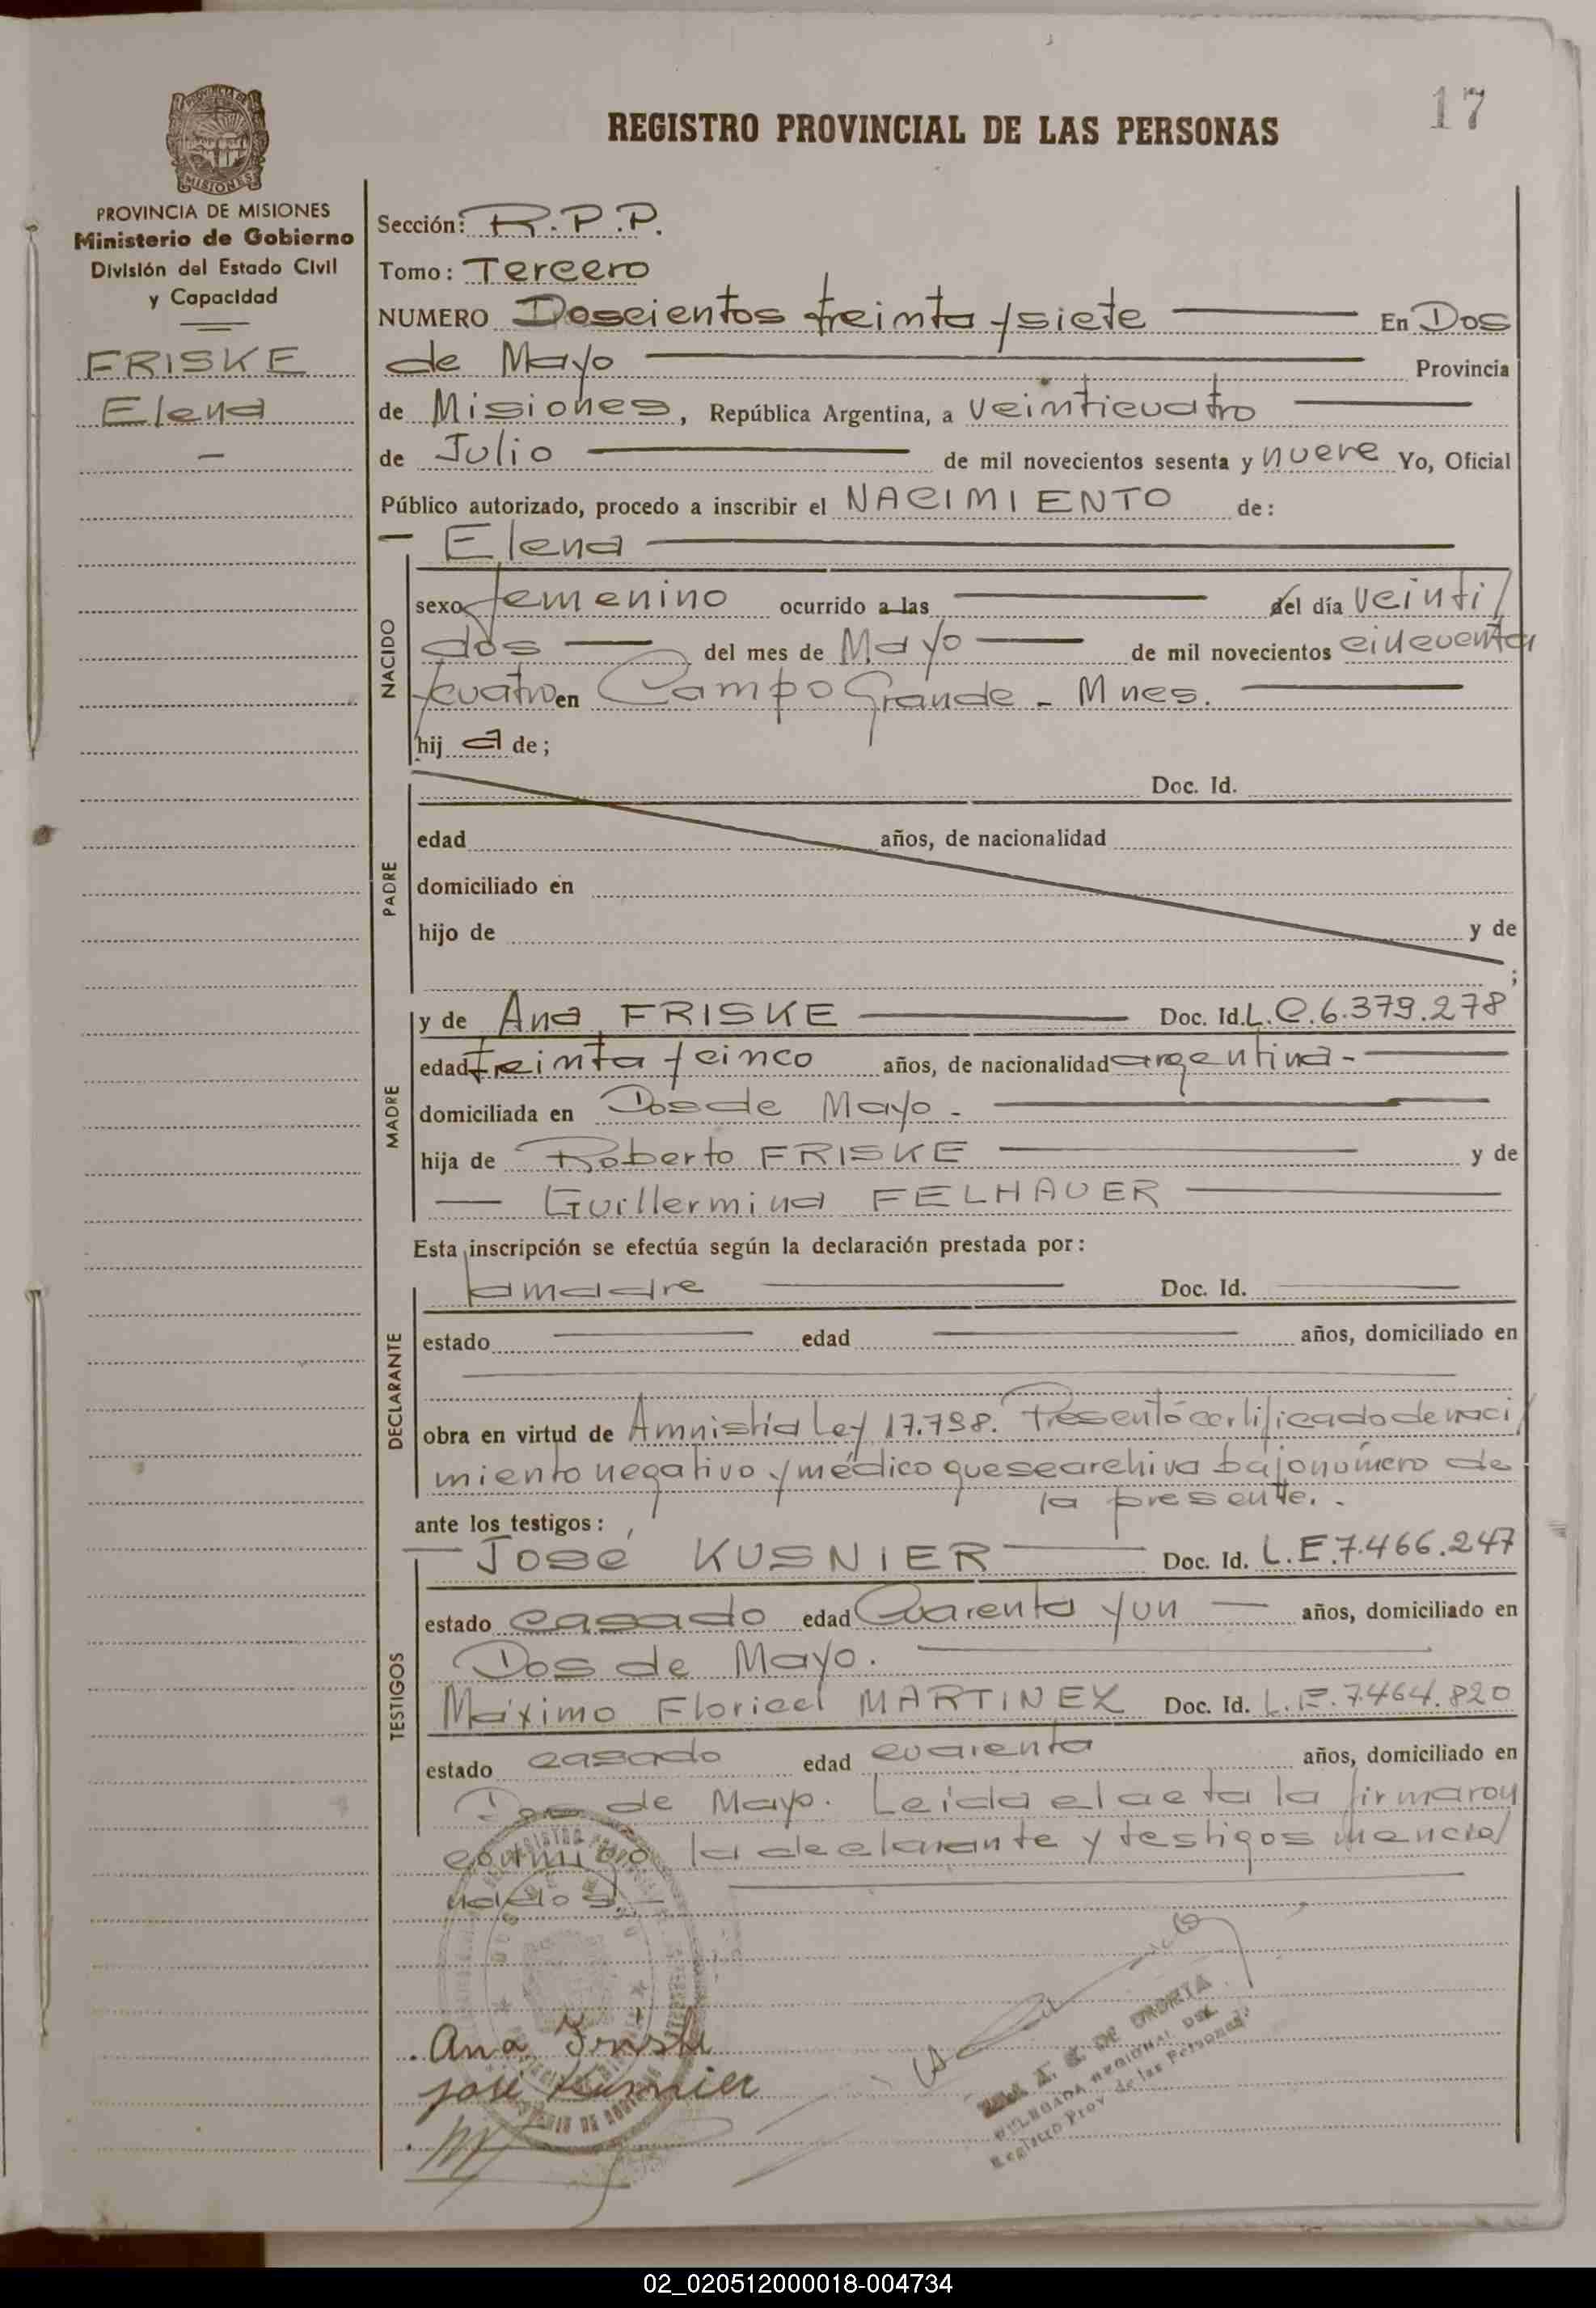 17
REGISTRO PROVINCIAL DE LAS PERSONAS
MISIONES
PROVINCIA DE MISIONES
Ministerio de Gobierno
División del Estado Civil
y Capacidad
FRISKE
Elena
Sección: R.P.P.
Tomo: Tercero
NUMERO Doscientos treinta y siete En Dos
de Mayo Provincia
de Misiones, República Argentina, a veinticuatro
de Julio de mil novecientos sesenta y nueve Yo, Oficial
Público autorizado, procedo a inscribir el NACIMIENTO de:
Elena
NACIDO
sexo femenino ocurrido a las del día veinti/
dos del mes de Mayo de mil novecientos cincuenta
y cuatro en Campo Grande - Mnes.
hij a de;
PADRE
Doc. Id.
edad años, de nacionalidad
domiciliado en
hijo de y de
;
MADRE
y de Ana FRISKE Doc. Id. L.C. 6.379.278
edad treinta y cinco años, de nacionalidad argentina-
domiciliada en Dos de Mayo -
hija de Roberto FRISKE y de
Guillermina FELHAUER
Esta inscripción se efectúa según la declaración prestada por:
DECLARANTE
la madre Doc. Id.
estado edad años, domiciliado en
obra en virtud de Amnistía Ley 17.798. Presentó certificado de naci/
miento negativo y médico que se archiva bajo número de
la presente. -
ante los testigos:
TESTIGOS
Jose KUSNIER Doc. Id. L.E. 7.466.247
estado casado edad Cuarenta y un años, domiciliado en
Dos de Mayo.
Máximo MARTINEZ Doc. Id. L.E. 7.464.820
estado casado edad cuarenta años, domiciliado en
Dos de Mayo. Leida el acta la firmaron
conmigo la declarante y testigos mencio/
nados. -
Ana Friske
josé Kusnier
DELEGADA REGIONAL DEL
Registro Prov. de las Personas
02_020512000018-004734